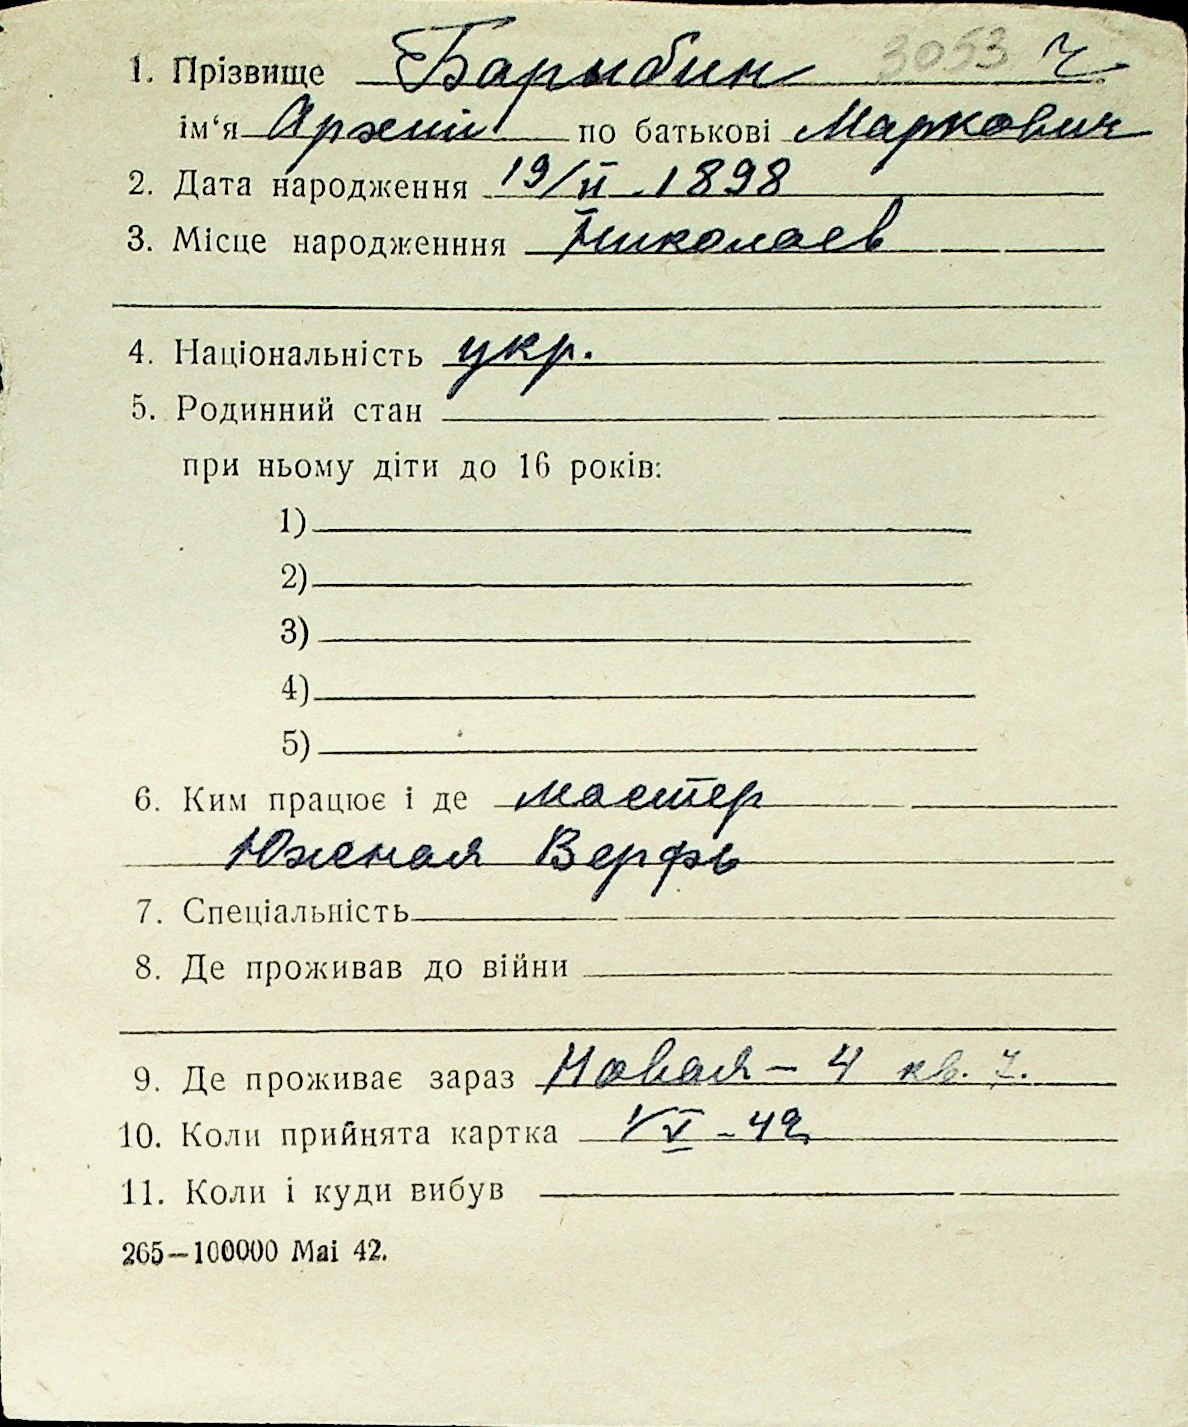 1. Прізвище Барыбин 3053 ч
ім‘я Архип по батькові Маркович
2. Дата народження 19/II - 1898
3. Місце народженння Николаев
4. Національність укр.
5. Родинний стан
при ньому діти до 16 років:
1)
2)
3)
4)
5)
6. Ким працює і де мастер
Южная Верфь
7. Спеціальність
8. Де проживав до війни
9. Де проживає зараз Новая – 4 кв. 7.
10. Коли прийнята картка 1/V - 42
11. Коли і куди вибув
265–100000 Mai 42.